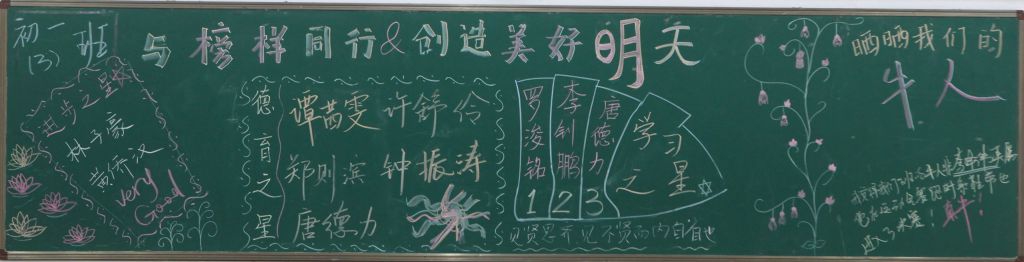 初一
(3)班
与榜样同行&创造美好明天
进步之星
林子豪
黄行汉
very
Good
德育之星
谭茜雯
许铮伶
郑则滨
钟振涛
唐德力
罗浚铭
1
李钊鹏
2
唐德力
3
学习
之星
见贤思齐见不贤而内自省也
晒晒我们的
牛人
进入了决赛!
牛!